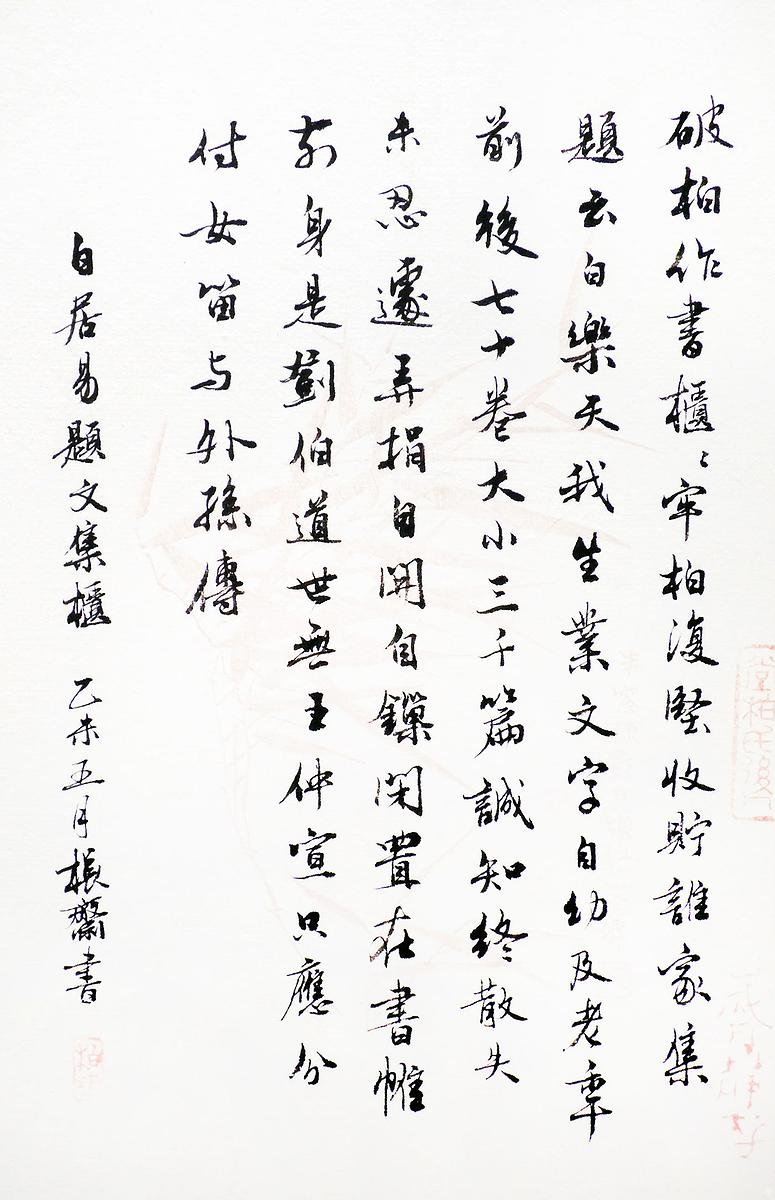 破柏作書櫃〻牢柏復堅收貯誰家集
題云白樂天我生業文字自幼及老年
前後七十卷大小三千篇誠知終散失
未忍遽弄捐自開自鏁閉置在書帷
前身是劉伯道世無王仲宣只應分
付女笛与外孫傳
白居易題文集櫃 乙未五月根齋書